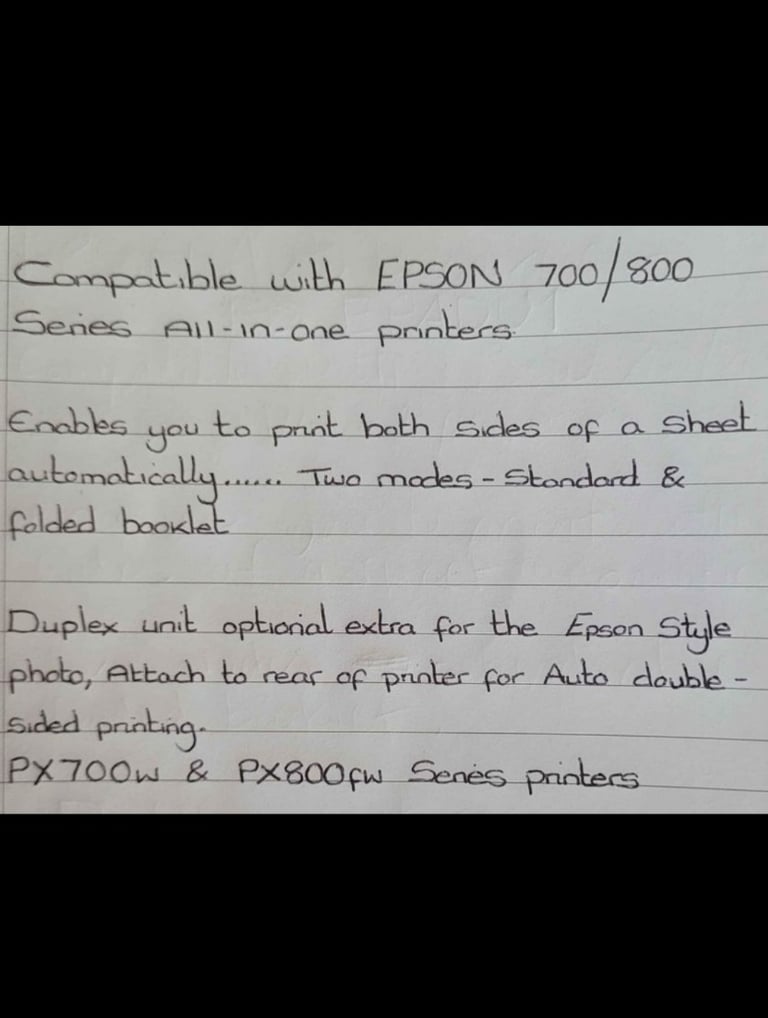 Compatible with EPSON 700/800
Series All-in-one printers.
Enables you to print both sides of a sheet
automatically...... Two modes - Standard &
folded booklet
Duplex unit optional extra for the Epson Style
photo, Attach to rear of printer for Auto double-
sided printing.
PX700w & PX800fw Series printers